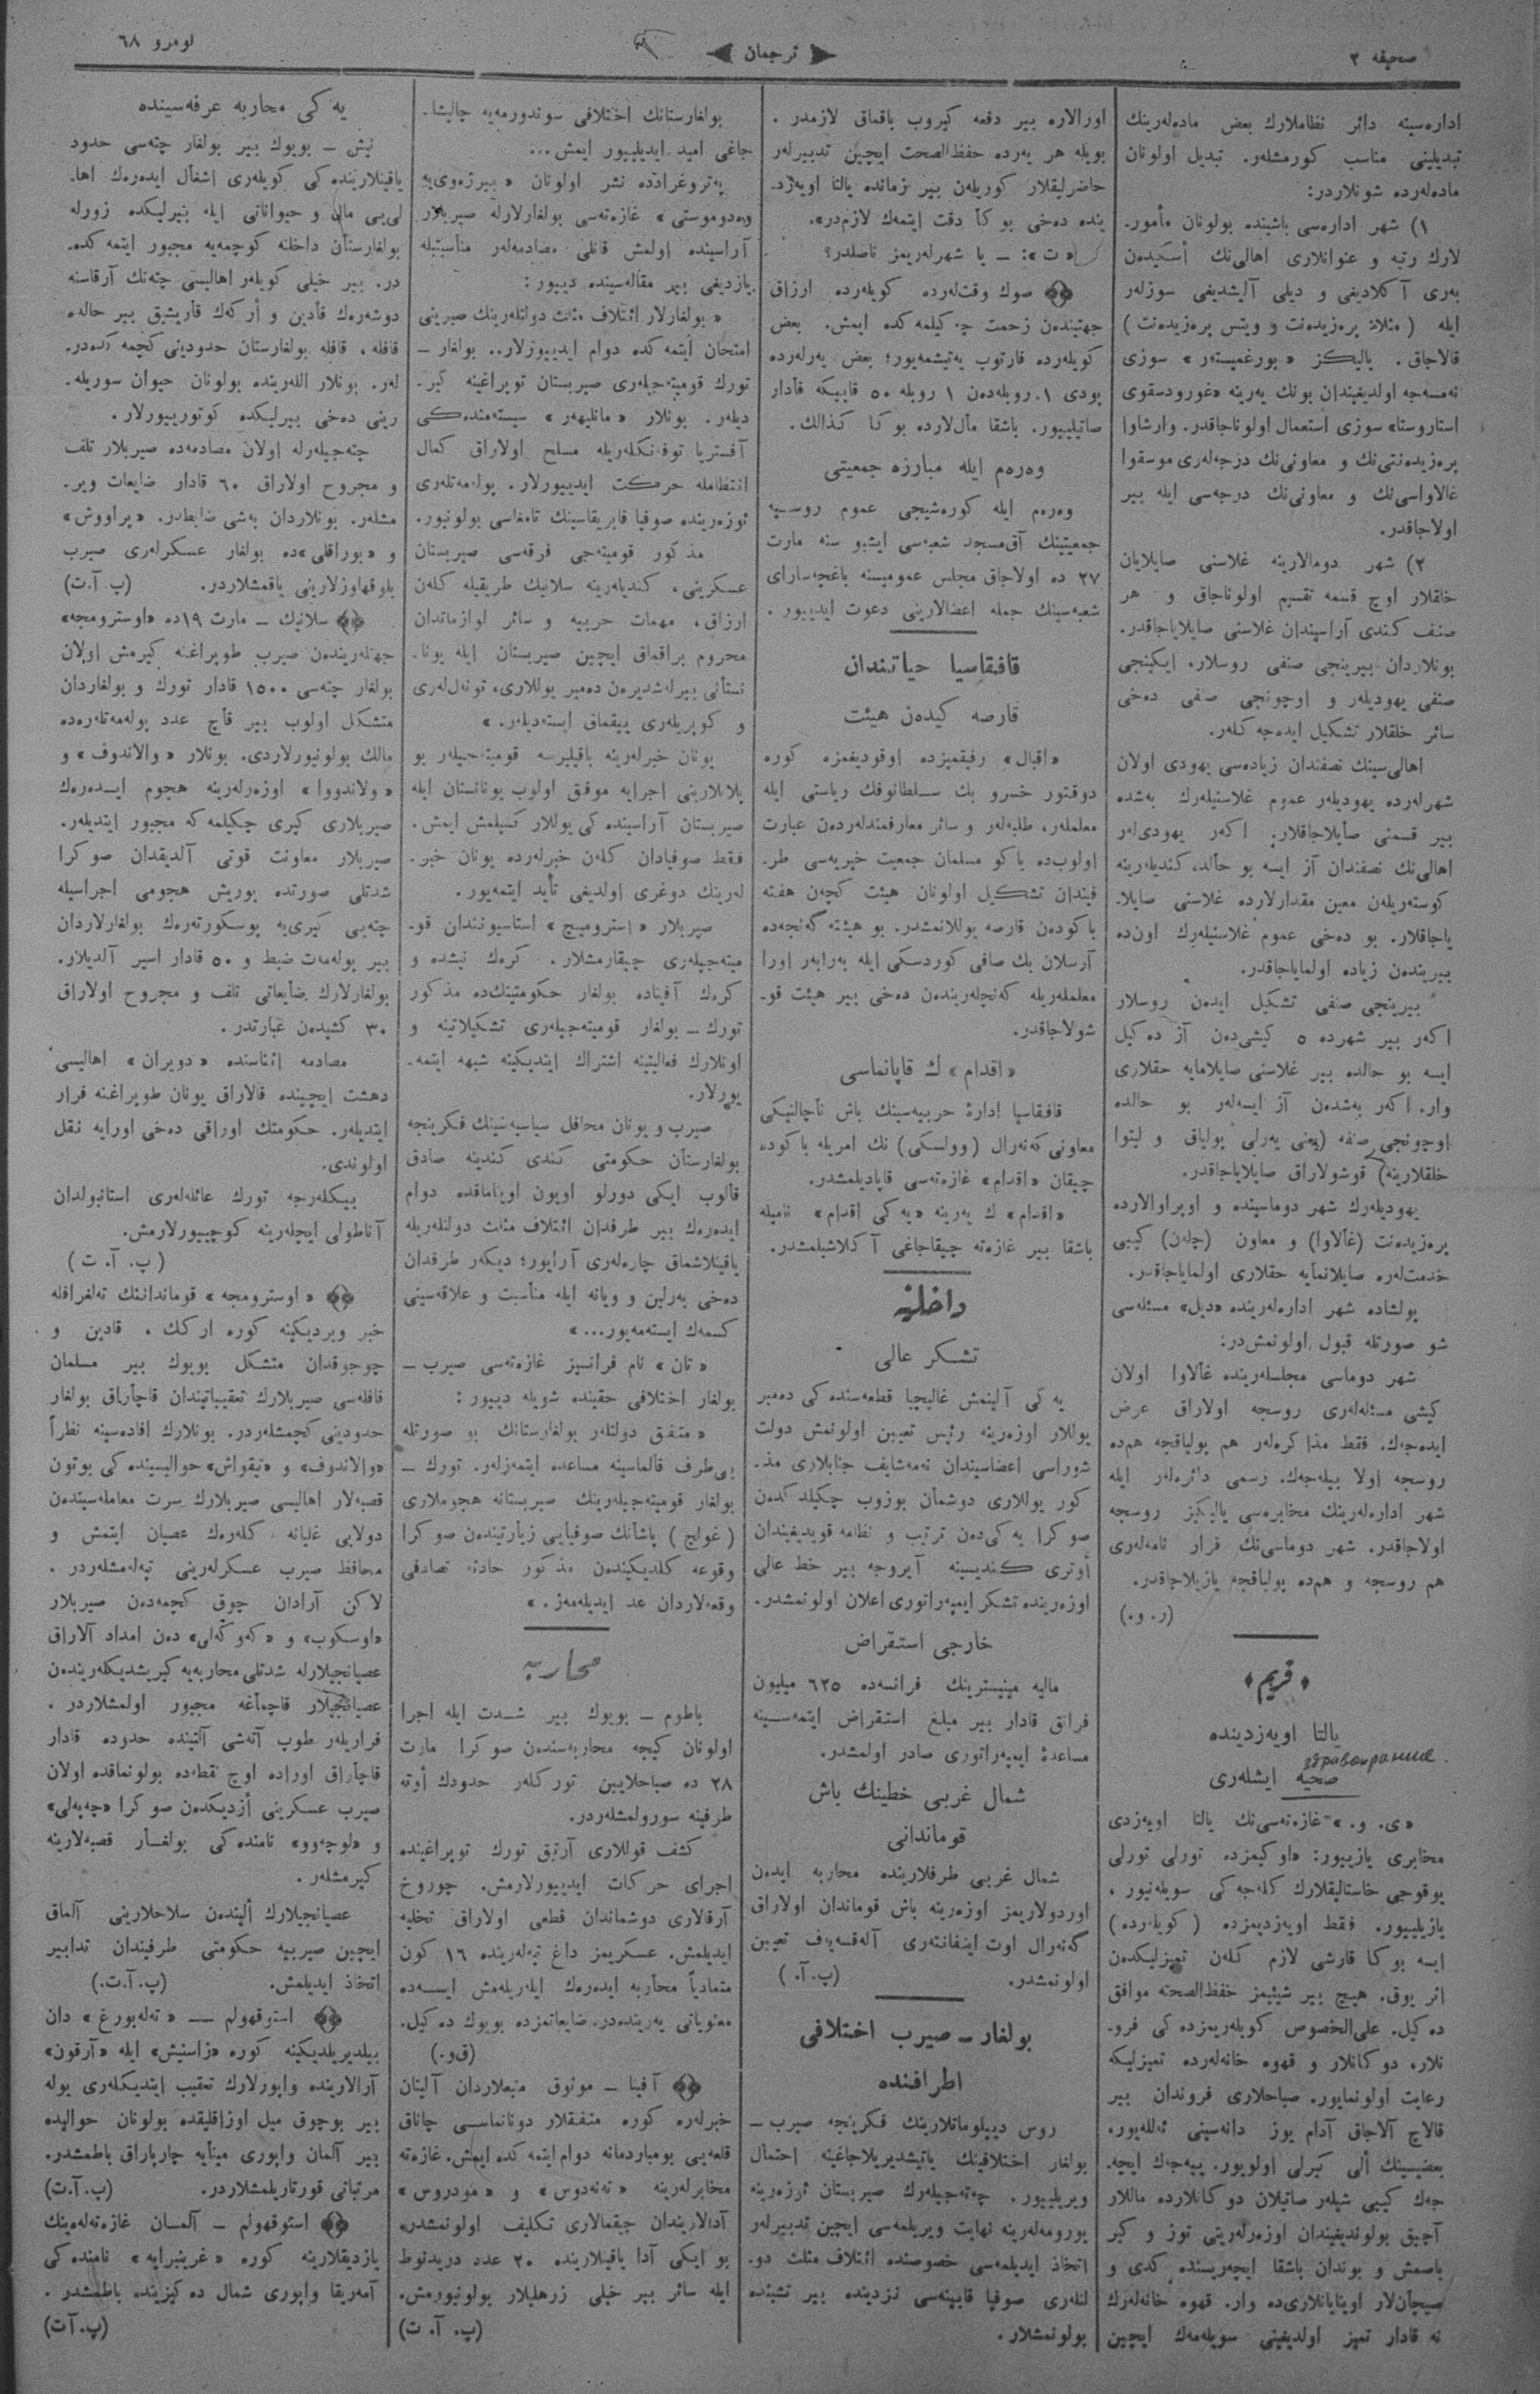 صحيفه ٢
ترجمان
نومرو ٦٨
اداره‌سينه دائر نظاملارك بعض ماده‌له‌رينك
تبديلينى مناسب كورمشلەر. تبديل اولونان
ماده‌لەرده شونلاردر:
١) شهر اداره‌سى باشينده بولونان مأمور-
لارك رتبه و عنوانلارى اهالى‌نك أسكيدەن
بەرى آكلاديغى و ديلى آليشديغى سوزلەر
ايله (مثلا: پرەزيدەنت و ويتس پرەزيدەنت)
قالاجاق. يالكز «بورغميستەر» سوزى
نەمسەجه اولديغيندان بونك يەرينه «غورودسقوى
استاروستا» سوزى استعمال اولوناجاقدر. وارشاوا
پرەزيدەنتى‌نك و معاونى‌نك درجەلەرى موسقوا
غالاواسى‌نك و معاونى‌نك درجەسى ايله بير
اولاجاقدر.
٢) شهر دومالارينه غلاسنى صايلايان
خلقلار اوچ قسمه تقسيم اولوناجاق و هر
صنف كندى آراسيندان غلاسنى صايلاياجاقدر.
بونلاردان بيرينجى صنفى روسلار، ايكينجى
صنفى يهوديلەر و اوچونجى صنفى دەخى
سائر خلقلار تشكيل ايدەجەكلەر.
اهالى‌سينك نصفندان زيادەسى يهودى اولان
شهرلەرده يهوديلەر عموم غلاسنيلەرك بەشده
بير قسمنى صايلاجاقلار. اكەر يهودى‌لەر
اهالى‌نك نصفندان آز ايسه بو حالده، كنديلەرينه
كوستەريلەن معين مقدارلارده غلاسنى صايلا-
ياجاقلار. بو دەخى عموم غلاسنيلەرك اون‌ده
بيريندەن زياده اولماياجاقدر.
بيرينجى صنفى تشكيل ايدەن روسلار
اكەر بير شهرده ٥ كيشى‌دەن آز دەكيل
ايسه بو حالده بير غلاسنى صايلامايه حقلارى
وار. اكەر بەشدەن آز ايسەلەر بو حالده
اوچونجى صنفه (يعنى يەرلى پولياق و ليتوا
خلقلارينه) قوشولاراق صايلاياجاقدر.
يهوديلەرك شهر دوماسينده و اوپراوالارده
پرەزيدەنت (غالاوا) و معاون (چلەن) كيبى
خدمت‌لەره صايلانمايه حقلارى اولماياجاقدر.
پولشاده شهر ادارەلەرينده «ديل» مسئلەسى
شو صورتله قبول اولونمش‌در:
شهر دوماسى مجلسلەرينده غالاوا اولان
كيشى مسئلەلەرى روسجه اولاراق عرض
ايدەجەك. فقط مذاكرەلەر هم پولياقجه هم‌ده
روسجه اولا بيلەجەك. رسمى دائرەلەر ايله
شهر ادارەلەرينك مخابرەسى يالكز روسجه
اولاجاقدر. شهر دوماسى‌نك قرار نامەلەرى
هم روسجه و هم‌ده پولياقجه يازيلاجاقدر.
(ر. و.)
قريم
يالتا اويەزدينده
здравохранние
صحيه ايشلەرى
«ى. و.» غازەتەسى‌نك يالتا اويەزدى
مخابرى يازييور: «اوكيمزده تورلى تورلى
يوقوجى خاستاليقلارك كلەجەكى سويلەنيور،
يازيلييور. فقط اويەزديمزده (كويلەرده)
ايسه بوكا قارشى لازم كلەن تميزليكدەن
اثر يوق. هيچ بير شيئيمز حفظ‌الصحته موافق
دەكيل. على‌الخصوص كويلەريمزدەكى فرو-
نلار، دوكانلار و قهوه خانەلەرده تميزليكه
رعايت اولونمايور. صباحلارى فروندان بير
قالاچ آلاجاق آدام يوز دانەسينى ئەللەيور.
بعضيسينك ألى كيرلى اولويور. ييەجەك ايچە-
جەك كيبى شيلەر صاتيلان دوكانلارده ماللار
آچيق بولونديغيندان اوزەرلەرينى توز و كير
باصمش و بوندان باشقا ايچەريسنده كدى و
صيچان‌لار اوينايانلارى‌ده وار. قهوه خانەلەرك
نه قادار تميز اولديغينى سويلەمەك ايچين
اورالاره بير دفعه كيروب باقماق لازمدر.
بويله هر يەرده حفظ‌الصحت ايچين تدبيرلەر
حاضرليقلار كوريلەن بير زمانده يالتا اويەزد-
ينده دەخى بوكا دقت ايتمەك لازم‌در».
«ت»: — يا شهرلەريمز ناصلدر؟
صوك وقت‌لەرده كويلەرده ارزاق
جهتيندەن زحمت چكيلمەكده ايمش. بعض
كويلەرده قارتوب يەتيشمەيور؛ بعض يەرلەرده
پودى ١ روبلەدەن ١ روبله ٥٠ قاپيكه قادار
صاتيلييور. باشقا ماللارده بوكا كذالك.
وەرەم ايله مبارزه جمعيتى
وەرەم ايله كورەشيجى عموم روسيه
جمعيتينك آق‌مسجد شعبەسى ايشبو سنه مارت
٢٧ ده اولاجاق مجلس عموميسنه باغچەساراى
شعبەسينك جمله اعضالارينى دعوت ايدييور.
قافقاسيا حياتندان
قارصه كيدەن هيئت
«اقبال» رفيقميزده اوقوديغمزه كوره
دوقتور خسرو بك سلطانوفك رياستى ايله
معلملەر، طلبەلەر و سائر معارفمندلەردەن عبارت
اولوب‌ده باكو مسلمان جمعيت خيريەسى طر-
فيندان تشكيل اولونان هيئت كچەن هفته
باكودەن قارصه يوللانمشدر. بو هيئته گەنجەده
آرسلان بك صافى كوردسكى ايله بەرابەر اورا
معلملەريله كەنجلەريندەن دەخى بير هيئت قو-
شولاجاقدر.
«اقدام» ك قاپانماسى
قافقاسيا ادارهٔ حربيەسينك باش ناچالنيكى
معاونى كەنەرال (وولسكى) نك امريله باكوده
چيقان «اقدام» غازەتەسى قاپاديلمشدر.
«اقدام» ك يەرينه «يەكى اقدام» ناميله
باشقا بير غازەته چيقاجاغى آكلاشيلمشدر.
داخليه
تشكر عالى
يەكى آلينمش غاليچيا قطعەسندەكى دەمير
يوللار اوزەرينه رئيس تعيين اولونمش دولت
شوراسى اعضاسيندان نەمەشايف جنابلارى مذ-
كور يوللارى دوشمان بوزوب چكيلدكدەن
صوكرا يەكى‌دەن ترتيب و نظامه قويديغيندان
أوترى كنديسينه آيروجه بير خط عالى
اوزەرينده تشكر ايمپەراتورى اعلان اولونمشدر.
خارجى استقراض
ماليه مينيسترينك فرانسەده ٦٢٥ ميليون
فرانق قادار بير مبلغ استقراض ايتمەسينه
مساعدهٔ ايمپەراتورى صادر اولمشدر.
شمال غربى خطينك باش
قوماندانى
شمال غربى طرفلارينده محاربه ايدەن
اوردولاريمز اوزەرينه باش قوماندان اولاراق
گەنەرال اوت اينفانتەرى آلەقسەيەف تعيين
اولونمشدر. (پ. آ.)
بولغار — صيرب اختلافى
اطرافنده
روس ديپلوماتلارينك فكرينجه صيرب —
بولغار اختلافينك ياتيشديريلاجاغينه احتمال
ويريلييور. چەتەجيلەرك صيربستان ئوزەرينه
يورومەلەرينه نهايت ويريلمەسى ايچين تدبيرلەر
اتخاذ ايديلمەسى خصوصنده ائتلاف مثلث دو-
لتلەرى صوفيا قابينەسى نزدينده بير تشبثده
بولونمشلار.
بولغارستانك اختلافى سوندورمەيه چاليشا-
جاغى اميد ايديلييور ايمش...
پەتروغرادده نشر اولونان «بيرژەوى‌يه
وەدوموستى» غازەتەسى بولغارلارله صيربلار
آراسينده اولمش قانلى مصادمەلەر مناسبتيله
يازديغى بير مقالەسينده دييور:
«بولغارلار ائتلاف مثلث دولتلەرينك صبرينى
امتحان ايتمەكده دوام ايدييورلار.. بولغار —
تورك قوميتەجيلەرى صيربستان توپراغينه كير-
ديلەر. بونلار «مانليهەر» سيستەمندەكى
آفستريا توفەنكلەريله مسلح اولاراق كمال
انتظامله حركت ايدييورلار. پولەمەتلەرى
ئوزەرينده صوفيا فابريقاسينك تامغاسى بولونيور.
مذكور قوميتەجى فرقەسى صيربستان
عسكرينى، كنديلەرينه سلانيك طريقيله كلەن
ارزاق، مهمات حربيه و سائر لوازماتدان
محروم براقماق ايچين صيربستان ايله يونا-
نستانى بيرلەشديرەن دەمير يوللارى، تونەل‌لەرى
و كوپريلەرى ييقماق ايستەديلەر.»
يونان خبرلەرينه باقيليرسه قوميتەجيلەر بو
پلانلارينى اجرايه موفق اولوب يونانستان ايله
صيربستان آراسيندەكى يوللار كسيلمش ايمش.
فقط صوفيادان كلەن خبرلەرده يونان خبر-
لەرينك دوغرى اولديغى تأيد ايتمەيور.
صيربلار «استروميچ» استاسيونندان قو-
ميتەجيلەرى چيقارمشلار. كرەك نيشده و
كرەك آفيناده بولغار حكومتينك‌ده مذكور
تورك — بولغار قوميتەجيلەرى تشكيلاتينه و
اونلارك فعاليتينه اشتراك ايتديكينه شبهه ايتمە-
يورلار.
صيرب و يونان محافل سياسيەسينك فكرينجه
بولغارستان حكومتى كندى كندينه صادق
قالوب ايكى دورلو اويون اويناماقده دوام
ايدەرەك بير طرفدان ائتلاف مثلث دولتلەريله
ياقينلاشماق چارەلەرى آرايور؛ ديكەر طرفدان
دەخى بەرلين و ويانه ايله مناسبت و علاقەسينى
كسمەك ايستەمەيور...»
«تان» نام فرانسيز غازەتەسى صيرب —
بولغار اختلافى حقينده شويله دييور:
«متفق دولتلەر بولغارستانك بو صورتله
بى‌طرف قالماسينه مساعده ايتمەزلەر. تورك —
بولغار قوميتەجيلەرينك صيربستانه هجوملارى
(غولچ) پاشانك صوفيايى زيارتيندەن صوكرا
وقوعه كلديكيندەن مذكور حادثه تصادفى
وقعەلاردان عد ايديلەمەز.»
محاربه
باطوم — بويوك بير شدت ايله اجرا
اولونان كيجه محاربەسندەن صوكرا مارت
٢٨ ده صباحلايين توركلەر حدودك أوته
طرفينه سورولمشلەردر.
كشف قوللارى آرتيق تورك توپراغينده
اجراى حركات ايدييورلارمش. چوروخ
آرقالارى دوشماندان قطعى اولاراق تخليه
ايديلمش. عسكريمز داغ تپەلەرينده ١٦ كون
متماديا محاربه ايدەرەك ايلەريلەمش ايسەده
معنوياتى يەرينده‌در. ضايعاتمزده بويوك دەكيل.
(ق.و.)
آفينا — موثوق منبعلاردان آلينان
خبرلەره كوره متفقلار دونانماسى چاناق
قلعەيى بومباردمانه دوام ايتمەكده ايمش. غازەته
مخابرلەرينه «تەنەدوس» و «مودروس»
آدالاريندان چيقمالارى تكليف اولونمشدر.
بو ايكى آدا ياقينلارينده ٢٠ عدد دريدنوط
ايله سائر بير خيلى زرهليلار بولونيورمش.
(پ. آ. ت)
يەكى محاربه عرفەسينده
نيش — بويوك بير بولغار چتەسى حدود
ياقينلاريندەكى كويلەرى اشغال ايدەرەك اها-
لى‌يى مالى و حيواناتى ايله بيرليكده زورله
بولغارستان داخلنه كوچمەيه مجبور ايتمەكده-
در. بير خيلى كويلەر اهاليسى چتەنك آرقاسنه
دوشەرەك قادين و أركەك قاريشيق بير حالده
قافله، قافله بولغارستان حدودينى كچمەكدەدر-
لەر. بونلار اللەرينده بولونان حيوان سوريلە-
رينى دەخى بيرليكده كوتورييورلار.
چتەجيلەرله اولان مصادمەده صيربلار تلف
و مجروح اولاراق ٦٠ قادار ضايعات وير-
مشلەر. بونلاردان بەشى ضابط‌در. «پراووش»
و «بوراقلى»ده بولغار عسكرلەرى صيرب
بلوقهاوزلارينى ياقمشلاردر. (پ.آ.ت)
سلانيك — مارت ١٩ده «اوسترومجه»
جهتلەريندەن صيرب طوپراغنه كيرمش اولان
بولغار چتەسى ١٥٠٠ قادار تورك و بولغاردان
متشكل اولوب بير قاچ عدد پولەمەتلەرەده
مالك بولونيورلاردى. بونلار «والاندوف» و
«ولاندووا» اوزەرلەرينه هجوم ايدەرەك
صيربلارى كيرى چكيلمەكه مجبور ايتديلەر.
صيربلار معاونت قوتى آلديقدان صوكرا
شدتلى صورتده يوريش هجومى اجراسيله
چتەيى كيرى‌يه پوسكورتەرەك بولغارلاردان
بير پولەمەت ضبط و ٥٠ قادار اسير آلديلار.
بولغارلارك ضايعاتى تلف و مجروح اولاراق
٣٠ كشيدەن عبارتدر.
مصادمه اثناسنده «دويران» اهاليسى
دهشت ايچينده قالاراق يونان طوپراغنه فرار
ايتديلەر. حكومتك اوراقى دەخى اورايه نقل
اولوندى.
بيكلەرجه تورك عائلەلەرى استانبولدان
آناطولى ايچلەرينه كوچييورلارمش.
(پ. آ. ت)
«اوسترومجه» قوماندانينك تەلغرافله
خبر ويرديكينه كوره اركك، قادين و
چوجوقدان متشكل بويوك بير مسلمان
قافلەسى صيربلارك تعقيباتيندان قاچاراق بولغار
حدودينى كچمشلەردر. بونلارك افادەسينه نظراً
«والاندوف» و «تيقواش» حواليسيندەكى بوتون
قصبەلار اهاليسى صيربلارك سرت معاملەسيندەن
دولايى غليانه كلەرەك عصيان ايتمش و
محافظ صيرب عسكرلەرينى تپەلەمشلەردر.
لاكن آرادان چوق كچمەدەن صيربلار
«اوسكوب» و «كەوگەلى» دەن امداد آلاراق
عصيانجيلارله شدتلى محاربەيه كيريشديكلەريندەن
عصيانجيلار قاچماغه مجبور اولمشلاردر.
فراريلەر طوپ آتەشى آلتينده حدوده قادار
قاچاراق اوراده اوچ نقطەده بولونماقده اولان
صيرب عسكرينى أزديكدەن صوكرا «چەپەلى»
و «لوچەوو» نامندەكى بولغار قصبەلارينه
كيرمشلەر.
عصيانجيلارك ألیندەن سلاحلارينى آلماق
ايچين صيربيه حكومتى طرفيندان تدابير
اتخاذ ايديلمش. (پ.آ.ت.)
استوقهولم — «تەلەبورغ» دان
بيلديريلديكينه كوره «زاسنيش» ايله «آرقون»
آرالارينده واپورلارك تعقيب ايتديكلەرى يوله
بير بوچوق ميل اوزاقليقده بولونان حواليده
بير آلمان واپورى مينايه چارپاراق باطمشدر.
مرتباتى قورتاريلمشلاردر. (پ.آ.ت)
استوقهولم — آلمان غازەتەلەرينك
يازديقلارينه كوره «غرينبرايه» نامندەكى
آمەريقا واپورى شمال دەكيزينده باطمشدر.
(پ.آت)